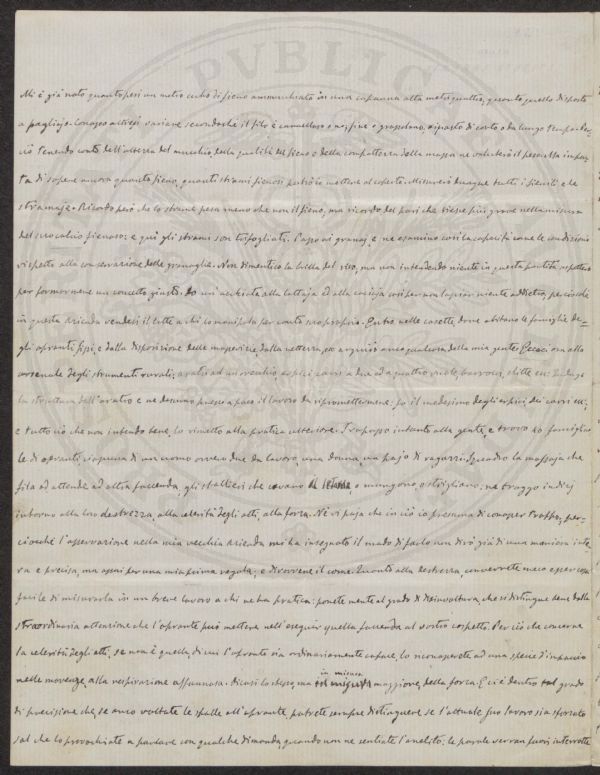 Mi è già noto quanto pesi un metro cubo di fieno ammucchiato in una capanna alta metri quattro, quanto quello disposto
a pagliajo. Conosco altresì variare secondochè il filo è cannelloso o no, fine o grossolano, riposto di corto o da lungo tempo. Per-
ciò tenendo conto dell'altezza del mucchio, della qualità del fieno e della compattezza della massa ne valuterò il peso. Ma impor-
ta di sapere ancora quanto fieno, quanti strami fienosi potrò io mettere al coperto. Misurerò dunque tutti i fienili e le
stramaje. Ricordo però che lo strame pesa meno che non il fieno, ma ricordo del pari che riesce più grave nella misura
del suo culmo fienoso: e qui gli strami son trifogliati. Passo ai granaj, e ne esamino così la capacità come le condizioni
rispetto alla conservazione delle granaglie. Non dimentico la brilla del riso, ma non intendendo niente in questa partita aspetterò
per formarmene un concetto giusto. Do un'occhiata alla lattaja ed alla casicia così per non lasciar niente addietro, perciocchè
in questa azienda vendesi il latte a chi lo manipola per conto suo proprio. Entro nelle casette dove abitano le famiglie de-
gli opranti fissi, e dalla disposizione delle masserizie, dalla nettezza, ecc. arguirò anco qualcosa della mia gente. Eccoci ora allo
arsenale degli strumenti rurali; aratri ad un vecchio, erpici, carri a due ed a quattro ruote, barrocci, slitte ecc. Indago
la struttura dell'aratro e ne desumo presso a poco il lavoro da ripromettermene: fo il medesimo degli erpici, dei carri ecc.;
e tutto ciò che non intendo bene, lo rimetto alla pratica ulteriore. Trapasso intanto alla gente, e trovo 20 famigliuo-
le di opranti, ciascuna di un uomo ovvero due da lavoro, una donna, un pajo di ragazzi. Squadro la massaja che
fila od attende ad altra faccenda, gli stallieri che cavano o mungono o strigliano; ne traggo indizj
intorno alla loro destrezza, alla celerità degli atti, alla forza. Nè vi paja che in ciò io presuma di conoscer troppo, per-
ciocchè l'osservazione nella mia vecchia azienda mi ha insegnato il modo di farlo non dirò già di una maniera inte-
ra e precisa, ma assai per una mia prima regola; e dirovvene il come. Quanto alla destrezza, converrete meco esser cosa
facile di misurarla in un breve lavoro a chi ne ha pratica: ponete mente al grado di disinvoltura, che si distingue bene dalla
straordinaria attenzione che l'oprante può mettere nell'eseguir quella faccenda al vostro cospetto. Per ciò che concerne
la celerità degli atti, se non è quella di cui l'oprante sia ordinariamente capace, lo riconoscerete ad una specie d'impaccio
nelle movenze, alla respirazione affannosa. Dicasi lo stesso, ma in misura maggiore, della forza. E ci è dentro tal grado
di precisione che, se anco voltate le spalle all'oprante, potrete sempre distinguere se l'attuale suo lavoro sia sforzato
sol che lo provochiate a parlare con qualche dimanda, quando non ne sentiate l'anelito: le parole verran fuori interrotte